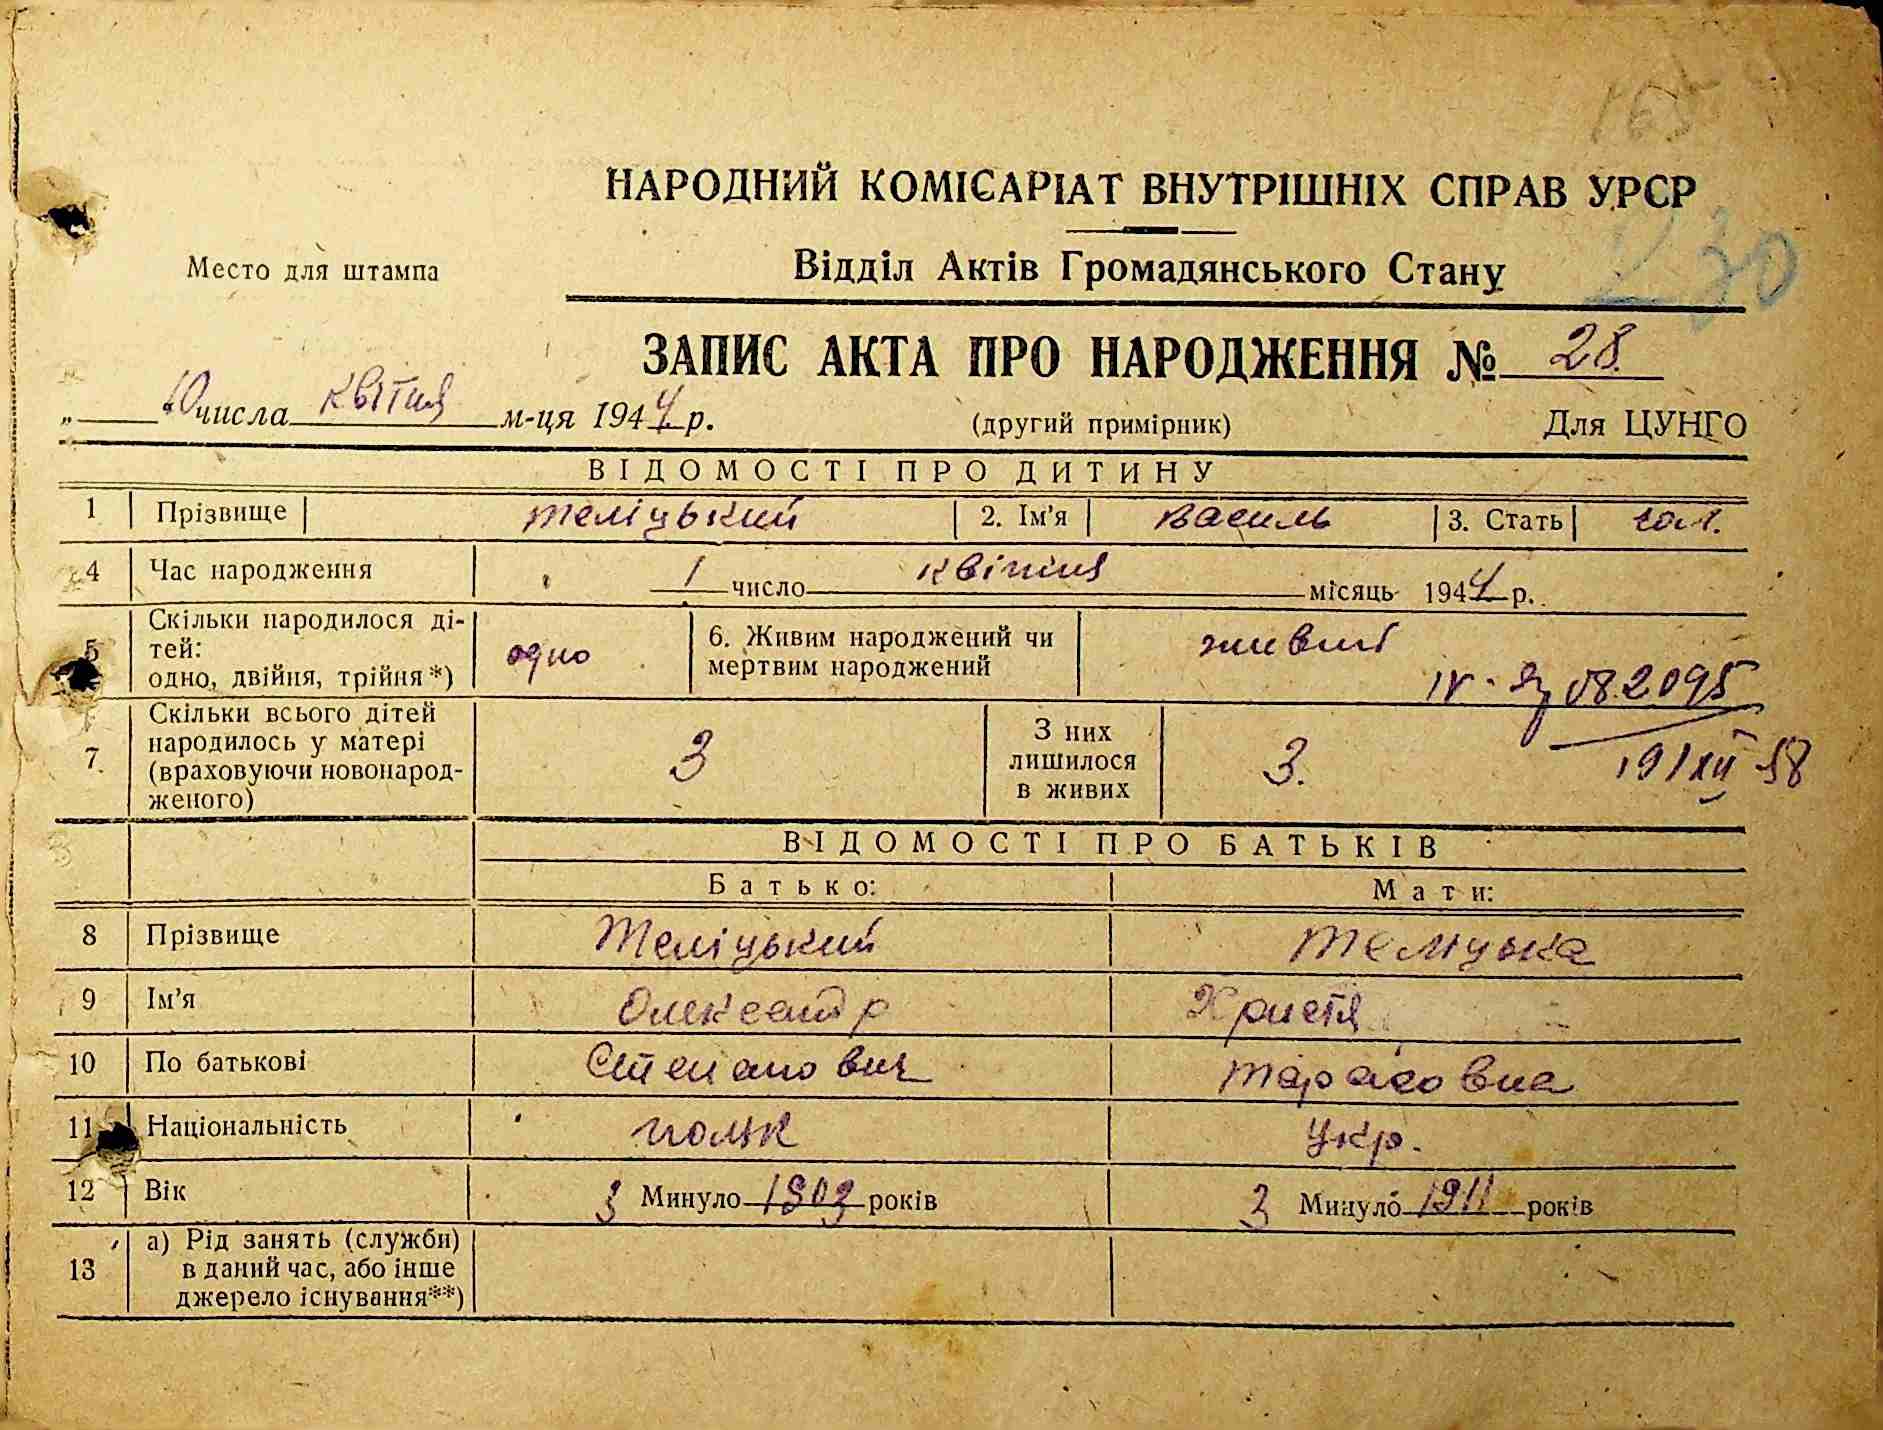 НАРОДНИЙ КОМІСАРІАТ ВНУТРІШНІХ СПРАВ УРСР
230
Место для штампа
Відділ Актів Громадянського Стану
ЗАПИС АКТА ПРО НАРОДЖЕННЯ № 28.
„ 10 числа квітня м-ця 1944 р. (другий примірник) Для ЦУНГО
ВІДОМОСТІ ПРО ДИТИНУ
1 Прізвище Теліцький 2. Ім'я Василь 3. Стать чол.
4 Час народження 1 число квітня місяць 1944 р.
5 Скільки народилося ді-
тей:
одно, двійня, трійня*) одно 6. Живим народжений чи
мертвим народжений живий
2095
19/XII 58
7. Скільки всього дітей
народилось у матері
(враховуючи новонарод-
женого) 3 З них
лишилося
в живих 3.
ВІДОМОСТІ ПРО БАТЬКІВ
Батько: Мати:
8 Прізвище Теліцький Теліцька
9 Ім'я Олександр Христя
10 По батькові Степанович Тарасовна
11 Національність поляк Укр.
12 Вік З Минуло 1903 років З Минуло 1911 років
13 а) Рід занять (служби)
в даний час, або інше
джерело існування**)